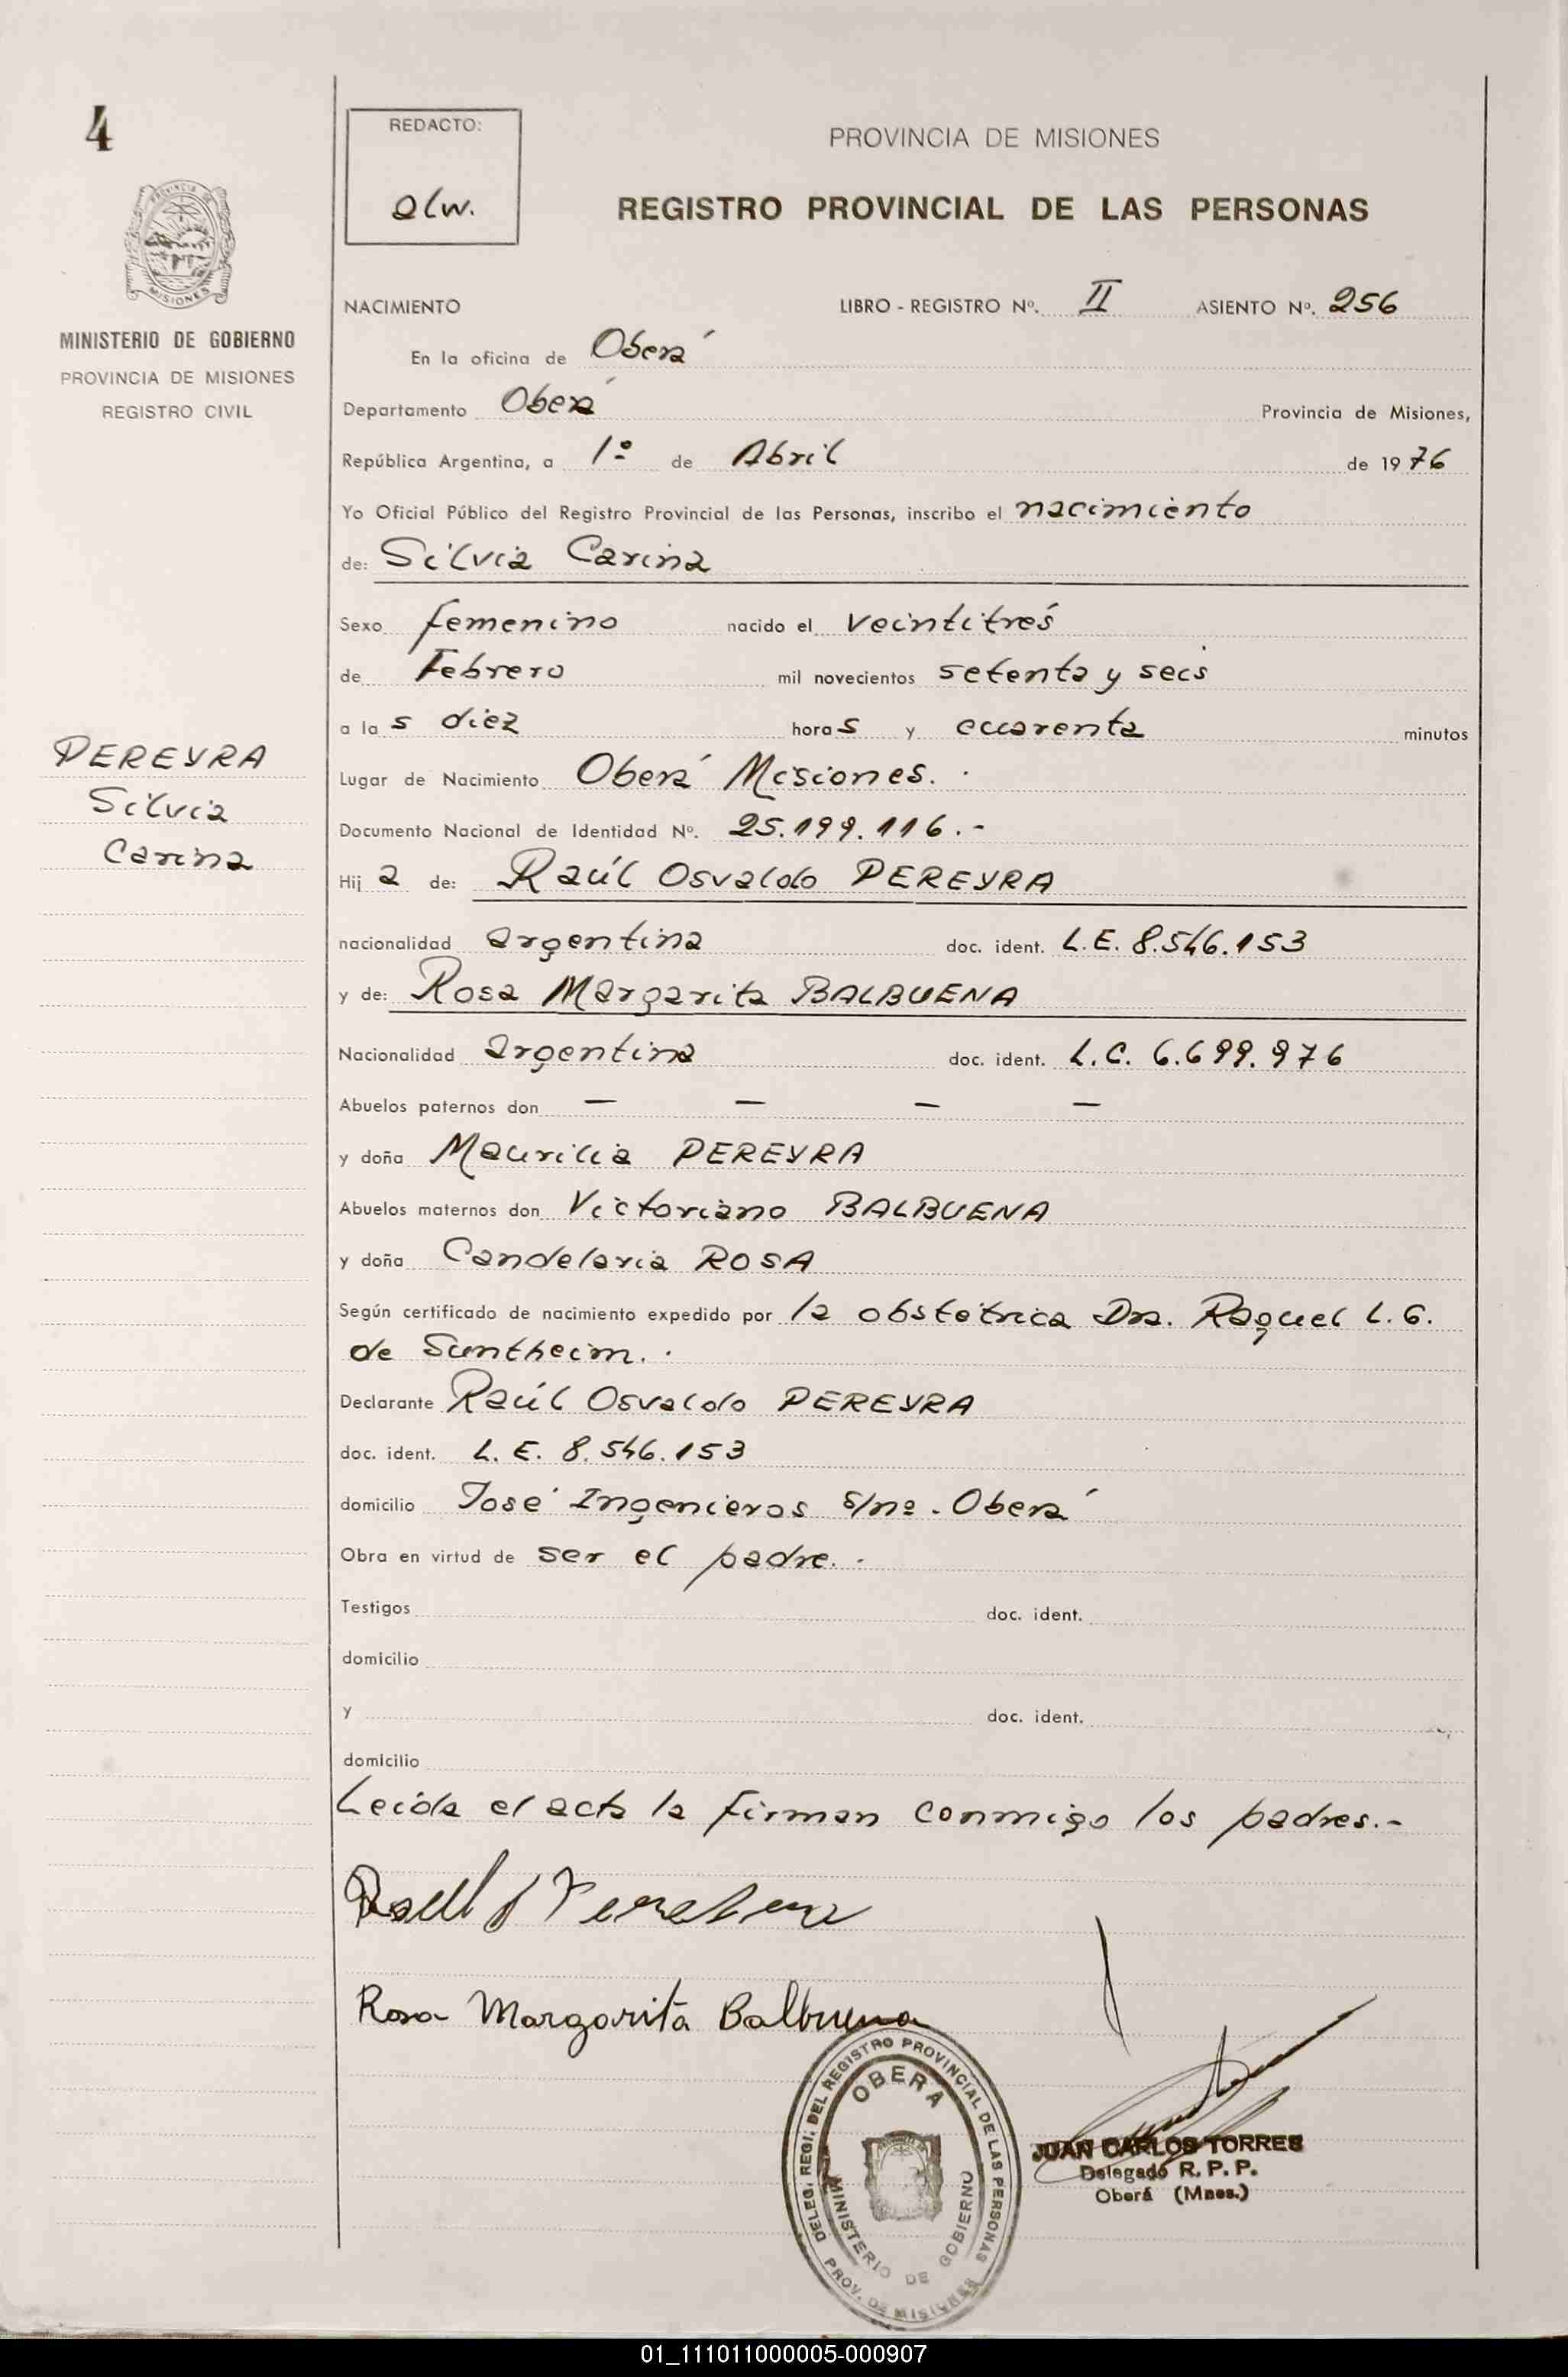 4
REDACTO:
alw.
PROVINCIA DE MISIONES
REGISTRO PROVINCIAL DE LAS PERSONAS
MISIONES
MINISTERIO DE GOBIERNO
PROVINCIA DE MISIONES
REGISTRO CIVIL
NACIMIENTO LIBRO - REGISTRO Nº. II ASIENTO Nº. 256
En la oficina de Oberá
Departamento Oberá Provincia de Misiones,
República Argentina, a 1º de Abril de 1976
Yo Oficial Público del Registro Provincial de las Personas, inscribo el nacimiento
de: Silvia Carina
Sexo femenino nacido el veintitrés
de Febrero mil novecientos setenta y seis
a las diez horas y cuarenta minutos
PEREYRA
Silvia
Carina
Lugar de Nacimiento Oberá Misiones.
Documento Nacional de Identidad Nº. 25.199.116.-
Hija de: Raúl Osvaldo PEREYRA
nacionalidad argentina doc. ident. L.E. 8.546.153
y de: Rosa Margarita BALBUENA
Nacionalidad argentina doc. ident. L.C. 6.699.976
Abuelos paternos don — — — —
y doña Maurilia PEREYRA
Abuelos maternos don Victoriano BALBUENA
y doña Candelaria ROSA
Según certificado de nacimiento expedido por la obstétrica Dra. Raquel L. G.
de Suntheim.
Declarante Raúl Osvaldo PEREYRA
doc. ident. L. E. 8.546.153
domicilio José Ingenieros s/nº. Oberá
Obra en virtud de ser el padre.
Testigos doc. ident.
domicilio
y doc. ident.
domicilio
Leída el acta la firman conmigo los padres.-
Rosa Margarita Balbuena
DELEG. REGI. DEL REGISTRO PROVINCIAL DE LAS PERSONAS
OBERA
MINISTERIO DE GOBIERNO
PROV. DE MISIONES
JUAN CARLOS TORRES
Delegado R. P. P.
Oberá (Mnes.)
01_111011000005-000907